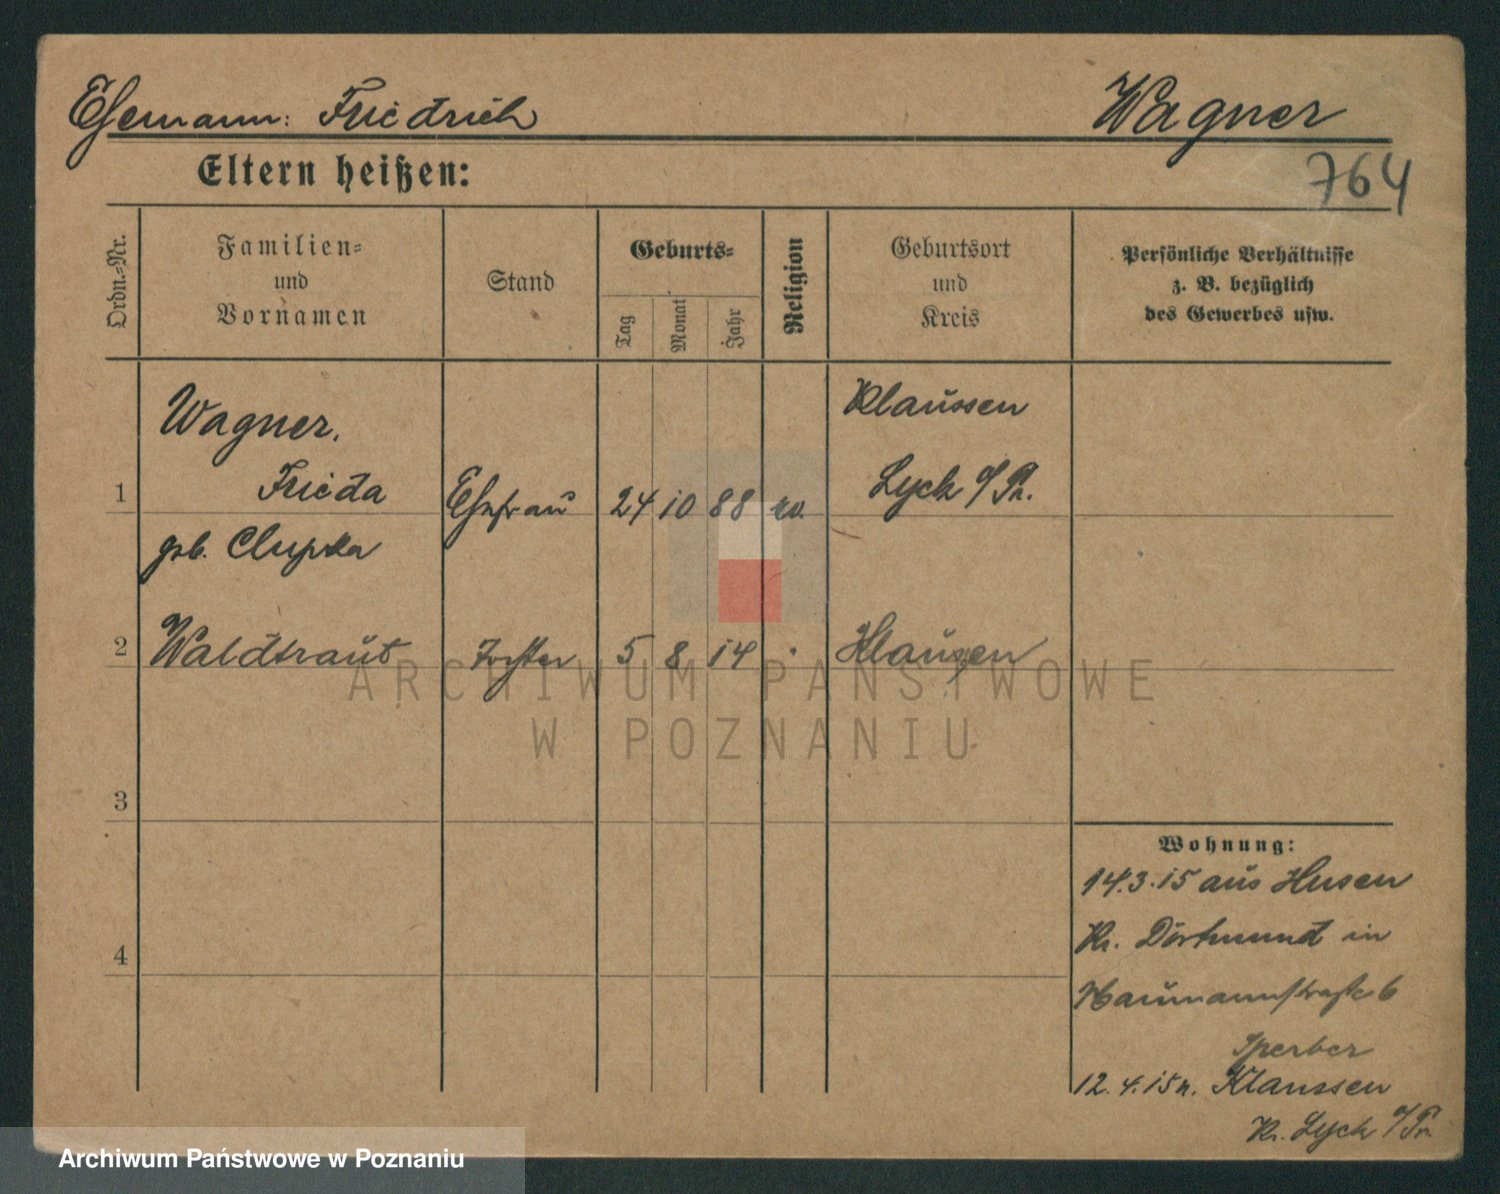 Ehemann: Friedrich Wagner
764
Eltern heißen:
Ordn.-Nr.
Familien-
und
Vornamen
Stand
Geburts-
Tag
Monat
Jahr
Religion
Geburtsort
und
Kreis
Persönliche Verhältnisse
z. B. bezüglich
des Gewerbes usw.
Wagner.
Klaussen
1 Frieda Ehefrau 24 10 88 ev. Lyck O/Pr.
geb. Clupka
2 Waldtraut Tochter 5 8 14 Klaussen
3
4
Wohnung:
14.3.15 aus Husen
Kr. Dortmund in
Naumannstraße 6
Sperber
12.4.15 n. Klaussen
Kr. Lyck O/Pr.
ARCHIWUM PAŃSTWOWE
W POZNANIU
Archiwum Państwowe w Poznaniu